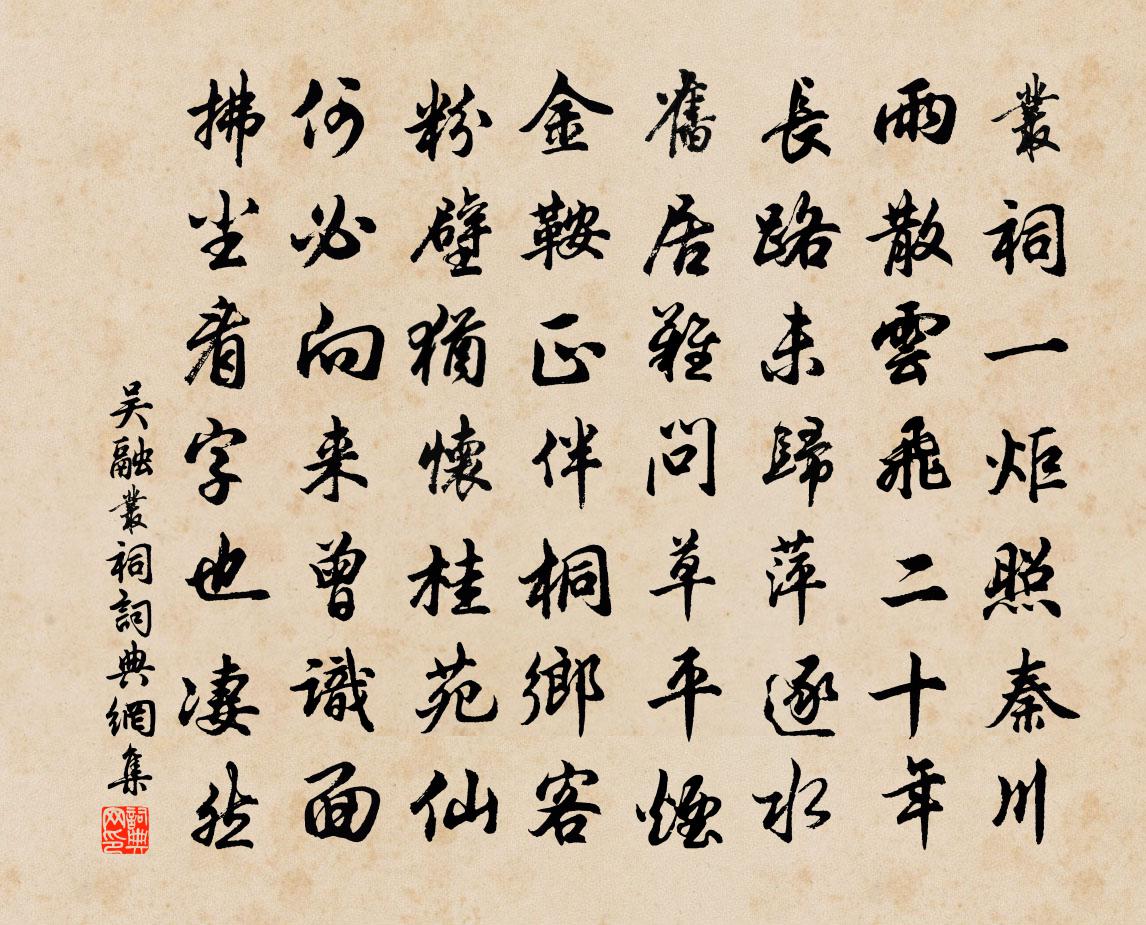 叢祠一炬照秦川
雨散雲飛二十年
長路未歸萍逐水
舊居難問草平煙
金鞍正伴桐鄉客
粉壁猶懷桂苑仙
何必向来曾識面
拂尘看字也凄然
吴融叢祠詞典網集
詞典网印